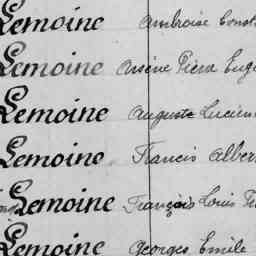 Lemoine Ambroise Const
Lemoine Arsène Pierre Eug
Lemoine Auguste Lucien
Lemoine Francis Alber
Lemoine François Louis
Lemoine Georges Emile